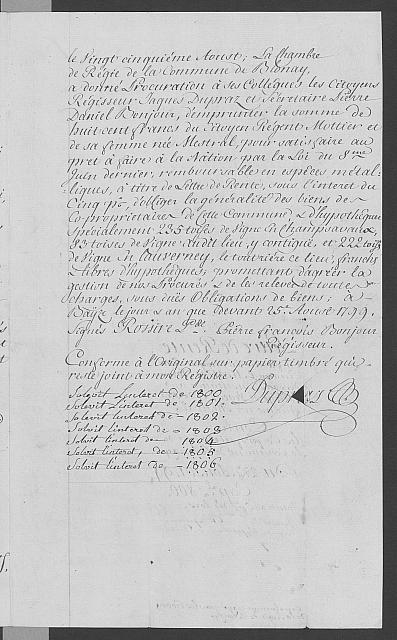 le Vingt cinquiéme Aoust; La Chambre
de Régie de la Commune de Blonay,
a donné Procuration à Ses Collégues les Citoyens
Régisseur Jaques Dupraz et Sécretaire Pierre
Daniel Bonjour, d'emprunter la somme de
huit cent francs du Citoyen Régent Mottier et
de sa femme née Mestral, pour satisfaire au
pret à faire à la Nation par la Loi du 8.me
Juin dernier, remboursable en espèces métal-
liques, à titre de Lettre de Rente, sous l'interet du
Cinq pr. d'obliger la généralité des biens de
Co-proprietaires de Cette Commune, & d'hypothèque
Spécialement 235 toises de Vigne En Champsavaux,
83 toises de Vigne Audit lieu, y contigüe, et 222 toises
de Vigne En Lauserney, le tout rière ce lieu, franchs
& libres d'hypothèques; promettant d'agréer la
gestion de nos Procurés & de les relever de toutes
charges, sous dües Obligations de biens; à
le jour & an que devant 25.e Aoust 1799.
Signés Rossier Pierre François Bonjour
Régisseur.
Conforme à l'Original sur papier timbré qui
reste joint à mon Régistre.
Solvit L'interet de 1800. Dupraz
Solovit L'interet de - 1801.
Solovit l'interet de - 1802.
Solvit l'interet de - 1803
Solvit l'interet de - 1804
Solvit l'interet, de - 1805
Solvit l'interet de - 1806